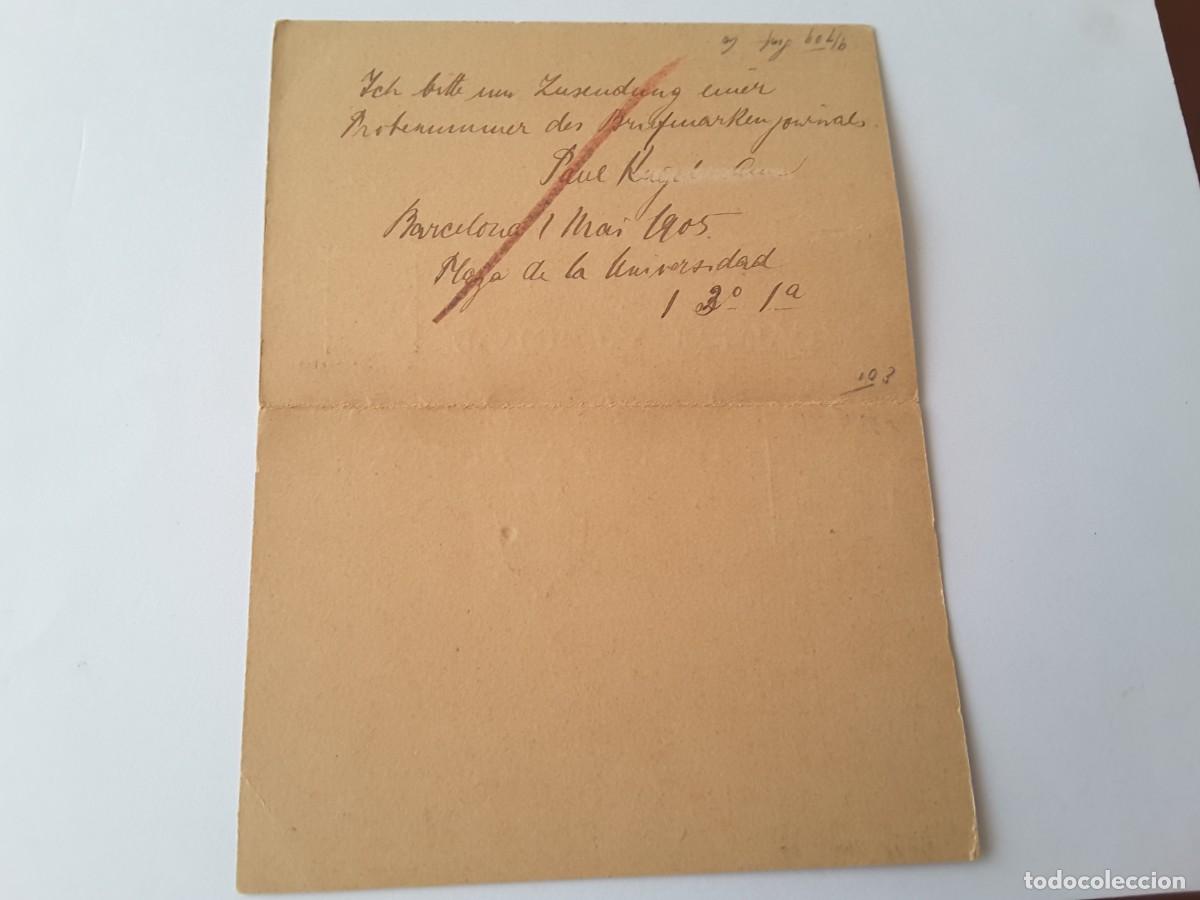 Ich bitte um Zusendung einer
Probenummer des Briefmarkenjournals.
Paul
Barcelona 1 Mai 1905.
Plaza de la Universidad
1 3º 1ª
103
todocoleccion